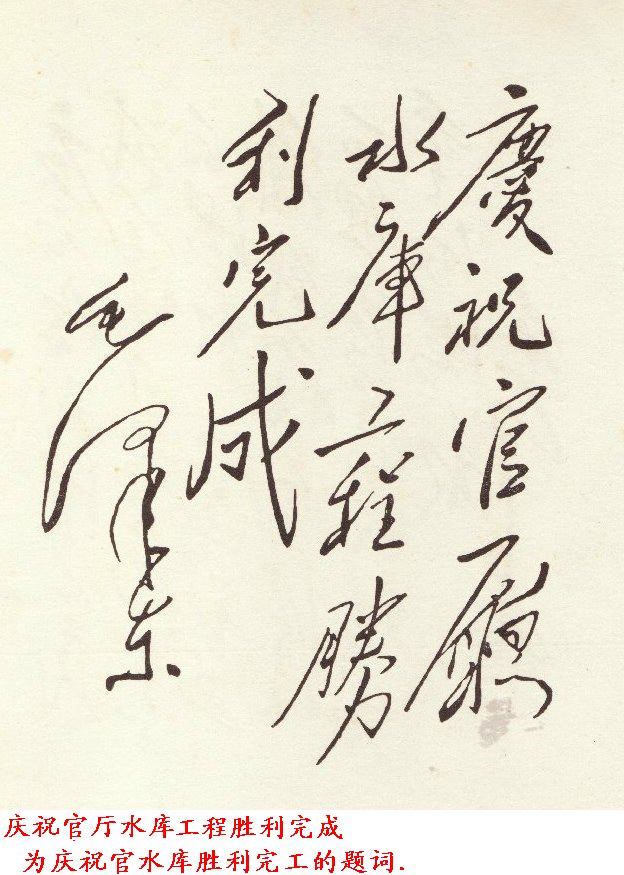 慶祝官廳
水庫工程勝
利完成
毛澤东
庆祝官厅水库工程胜利完成
为庆祝官水库胜利完工的题词.